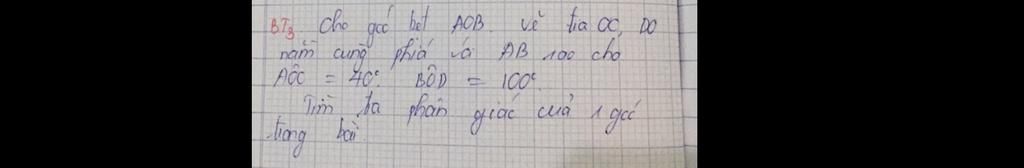 BT3. Cho góc bẹt AOB. vẽ tia OC, DO
nằm cùng phía với AB sao cho
AÔC = 40°. BÔD = 100°.
Tìm tia phân giác của 1 góc
trong bài.